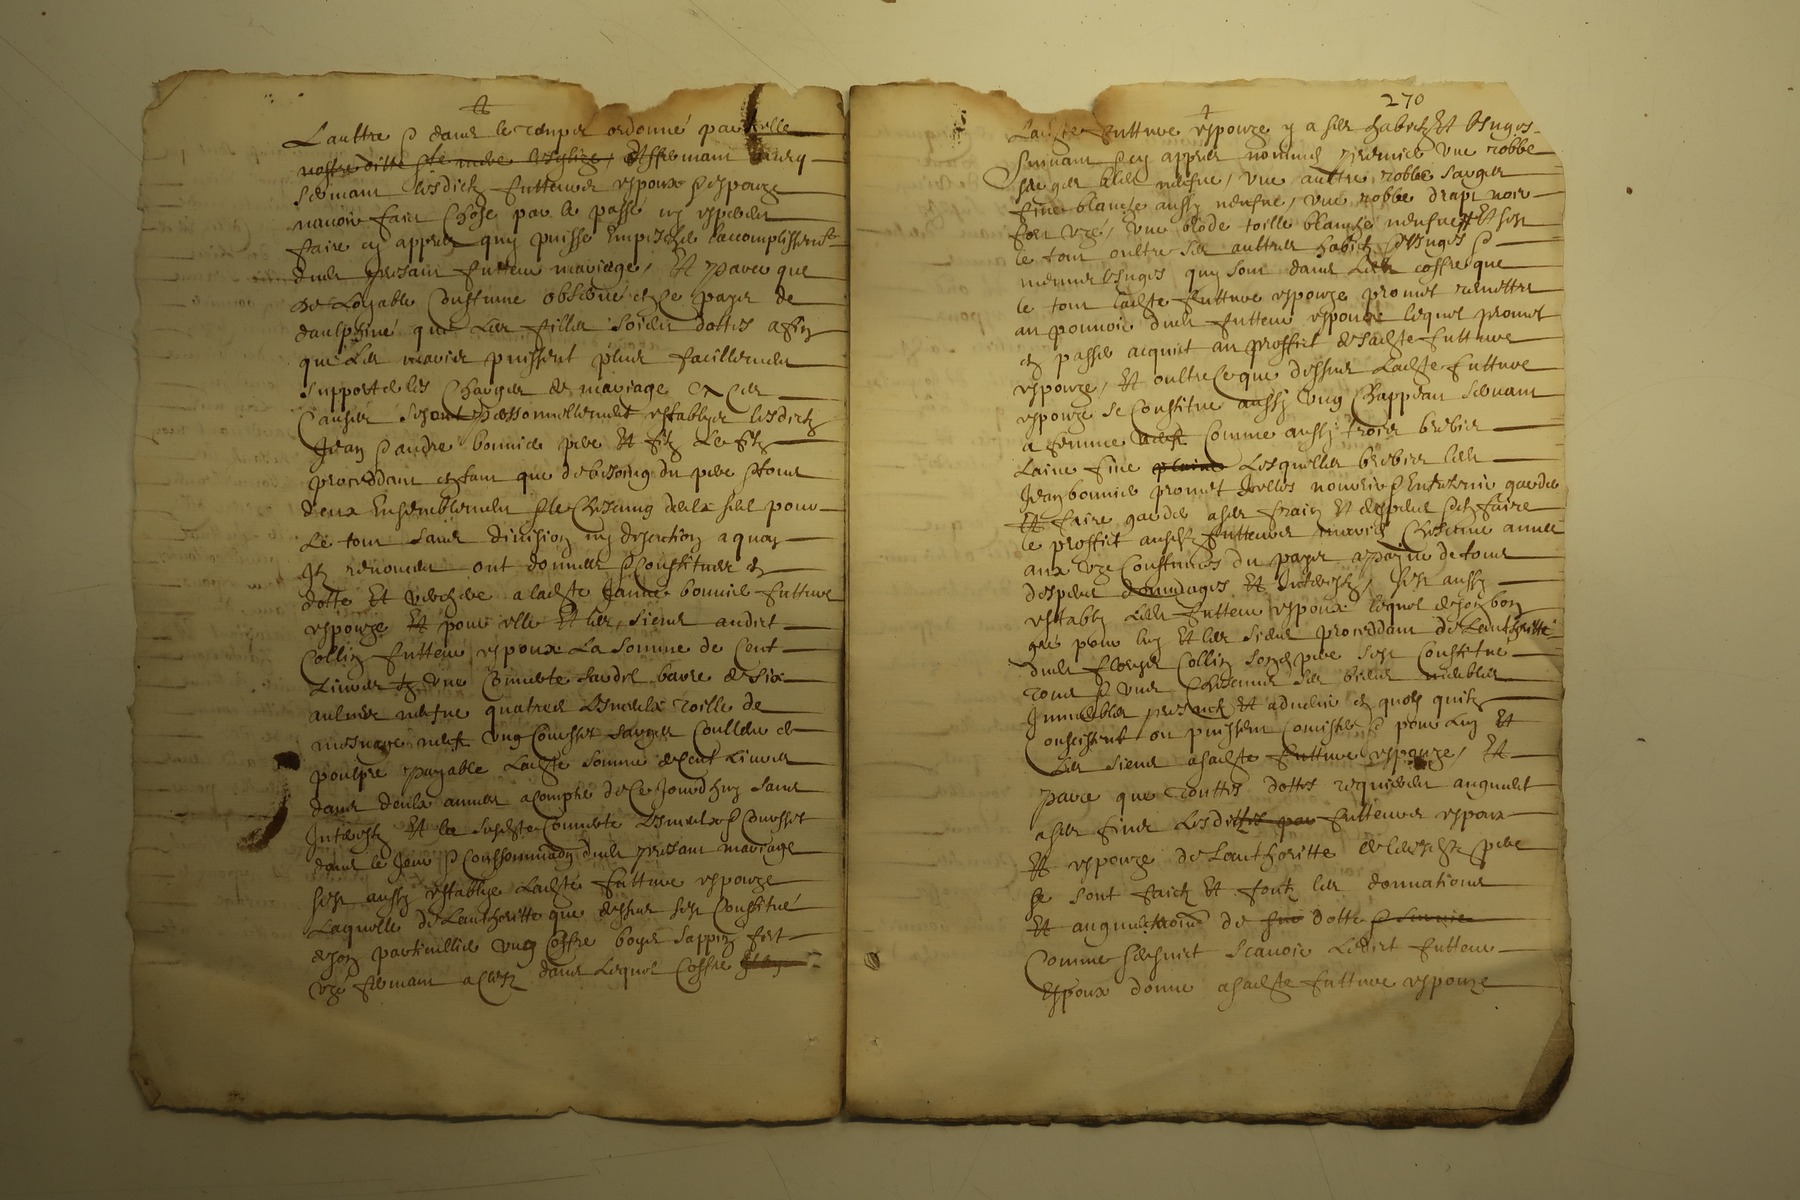 Lauttre & dans le temps ordonné par elle
nostre ditte ste mere esglize, Affermant
lesdictz futteurs espoux & espouze
navoir faict chose par le passé ny esperer
faire cy appres quy puisse empescher laccomplissemt
dud present futteur mariage, Et parce que
de Loyable coustume observé en ce pays de
daulphiné que les filles soient dottes affin
que les maris puissent plus facillement
supporter les charges de mariage A ces
causes sont personnellement establys lesdictz
Jean & andre bonnier pere et filz le filz
proceddant en tant que de besoing du pere & tous
deux Ensemblement & le chescung deulx seul pour
Le tout sans division ny discution a quoy
Ilz renoncent ont donner & constituer en
dotte Et verchere a ladte Janne bonnier future
espouze Et pour elle Et les siens audict
Collin futteur espoux La somme de Cent
Livres une couverte sardis barre de six
aulnes nefve quatre linceulx toille de
mesnage neuf ung corsset sarges coulleur de
poulpre payable Ladte somme de cent Livres
dans deulx annees a compter de ce jourdhuy sans
Interestz Et la susdte couverte Linceulx & corsset
dans le jour & consommaon dud present mariage
sest aussy establye Ladte future espouze
Laquelle de Lauthoritte que dessus sest constitué
de son particullier ung coffre boys sappin fort
uzé fermant a clefz dans lequel coffre
270
Ladte future espouze y a ses habitz Et linges
suivant & cy appres nommes premier une robbe
sarges neufve, une aultre robbe sarges
fine blanche aussy neufve, une robbe drapt noir
fort uzé, une toille blanche neufve Et son
le tout oultre ses aultres habitz & linges &
menus linges quy sont dans led coffre que
le tout ladte future espouze promet remettre
au pouvoir dud futteur espoux lequel promet
en passer acquict au proffict de ladte future
espouze, Et oultre ce que dessus Ladte future
espouze se constitue aussy ung chappeau servant
a femme comme aussy trois brebis
Laine fine Lesquelles brebis led
Jean bonnier promet Icelles nourrir & Entretenir garder
Et faire garder a ses frais Et despens & en faire
le proffict ausd futteurs maries chescune annee
aux uz et coustumes du pays a payne de tous
despens domages Et Interestz, Sest aussy
establi led futteur espoux lequel de son bon
gré pour luy et les siens proceddant de Lauthoritté
dud Collin son pere sest constitue
tous & uns chescuns ses biens meubles
Immeubles presentz Et advenir en quoy quilz
consistent ou puissent consister & pour luy Et
Les siens a ladte future espouze, Et
parce que touttes dottes requierent augment
a ses fins Lesdits futteurs espoux
Et espouze de Lauthoritte de leursdz pere
se sont faictz Et font les donnations
Et augmentation de dotte
comme sensuict scavoir Ledict futteur
Espoux donne a ladte future espouze